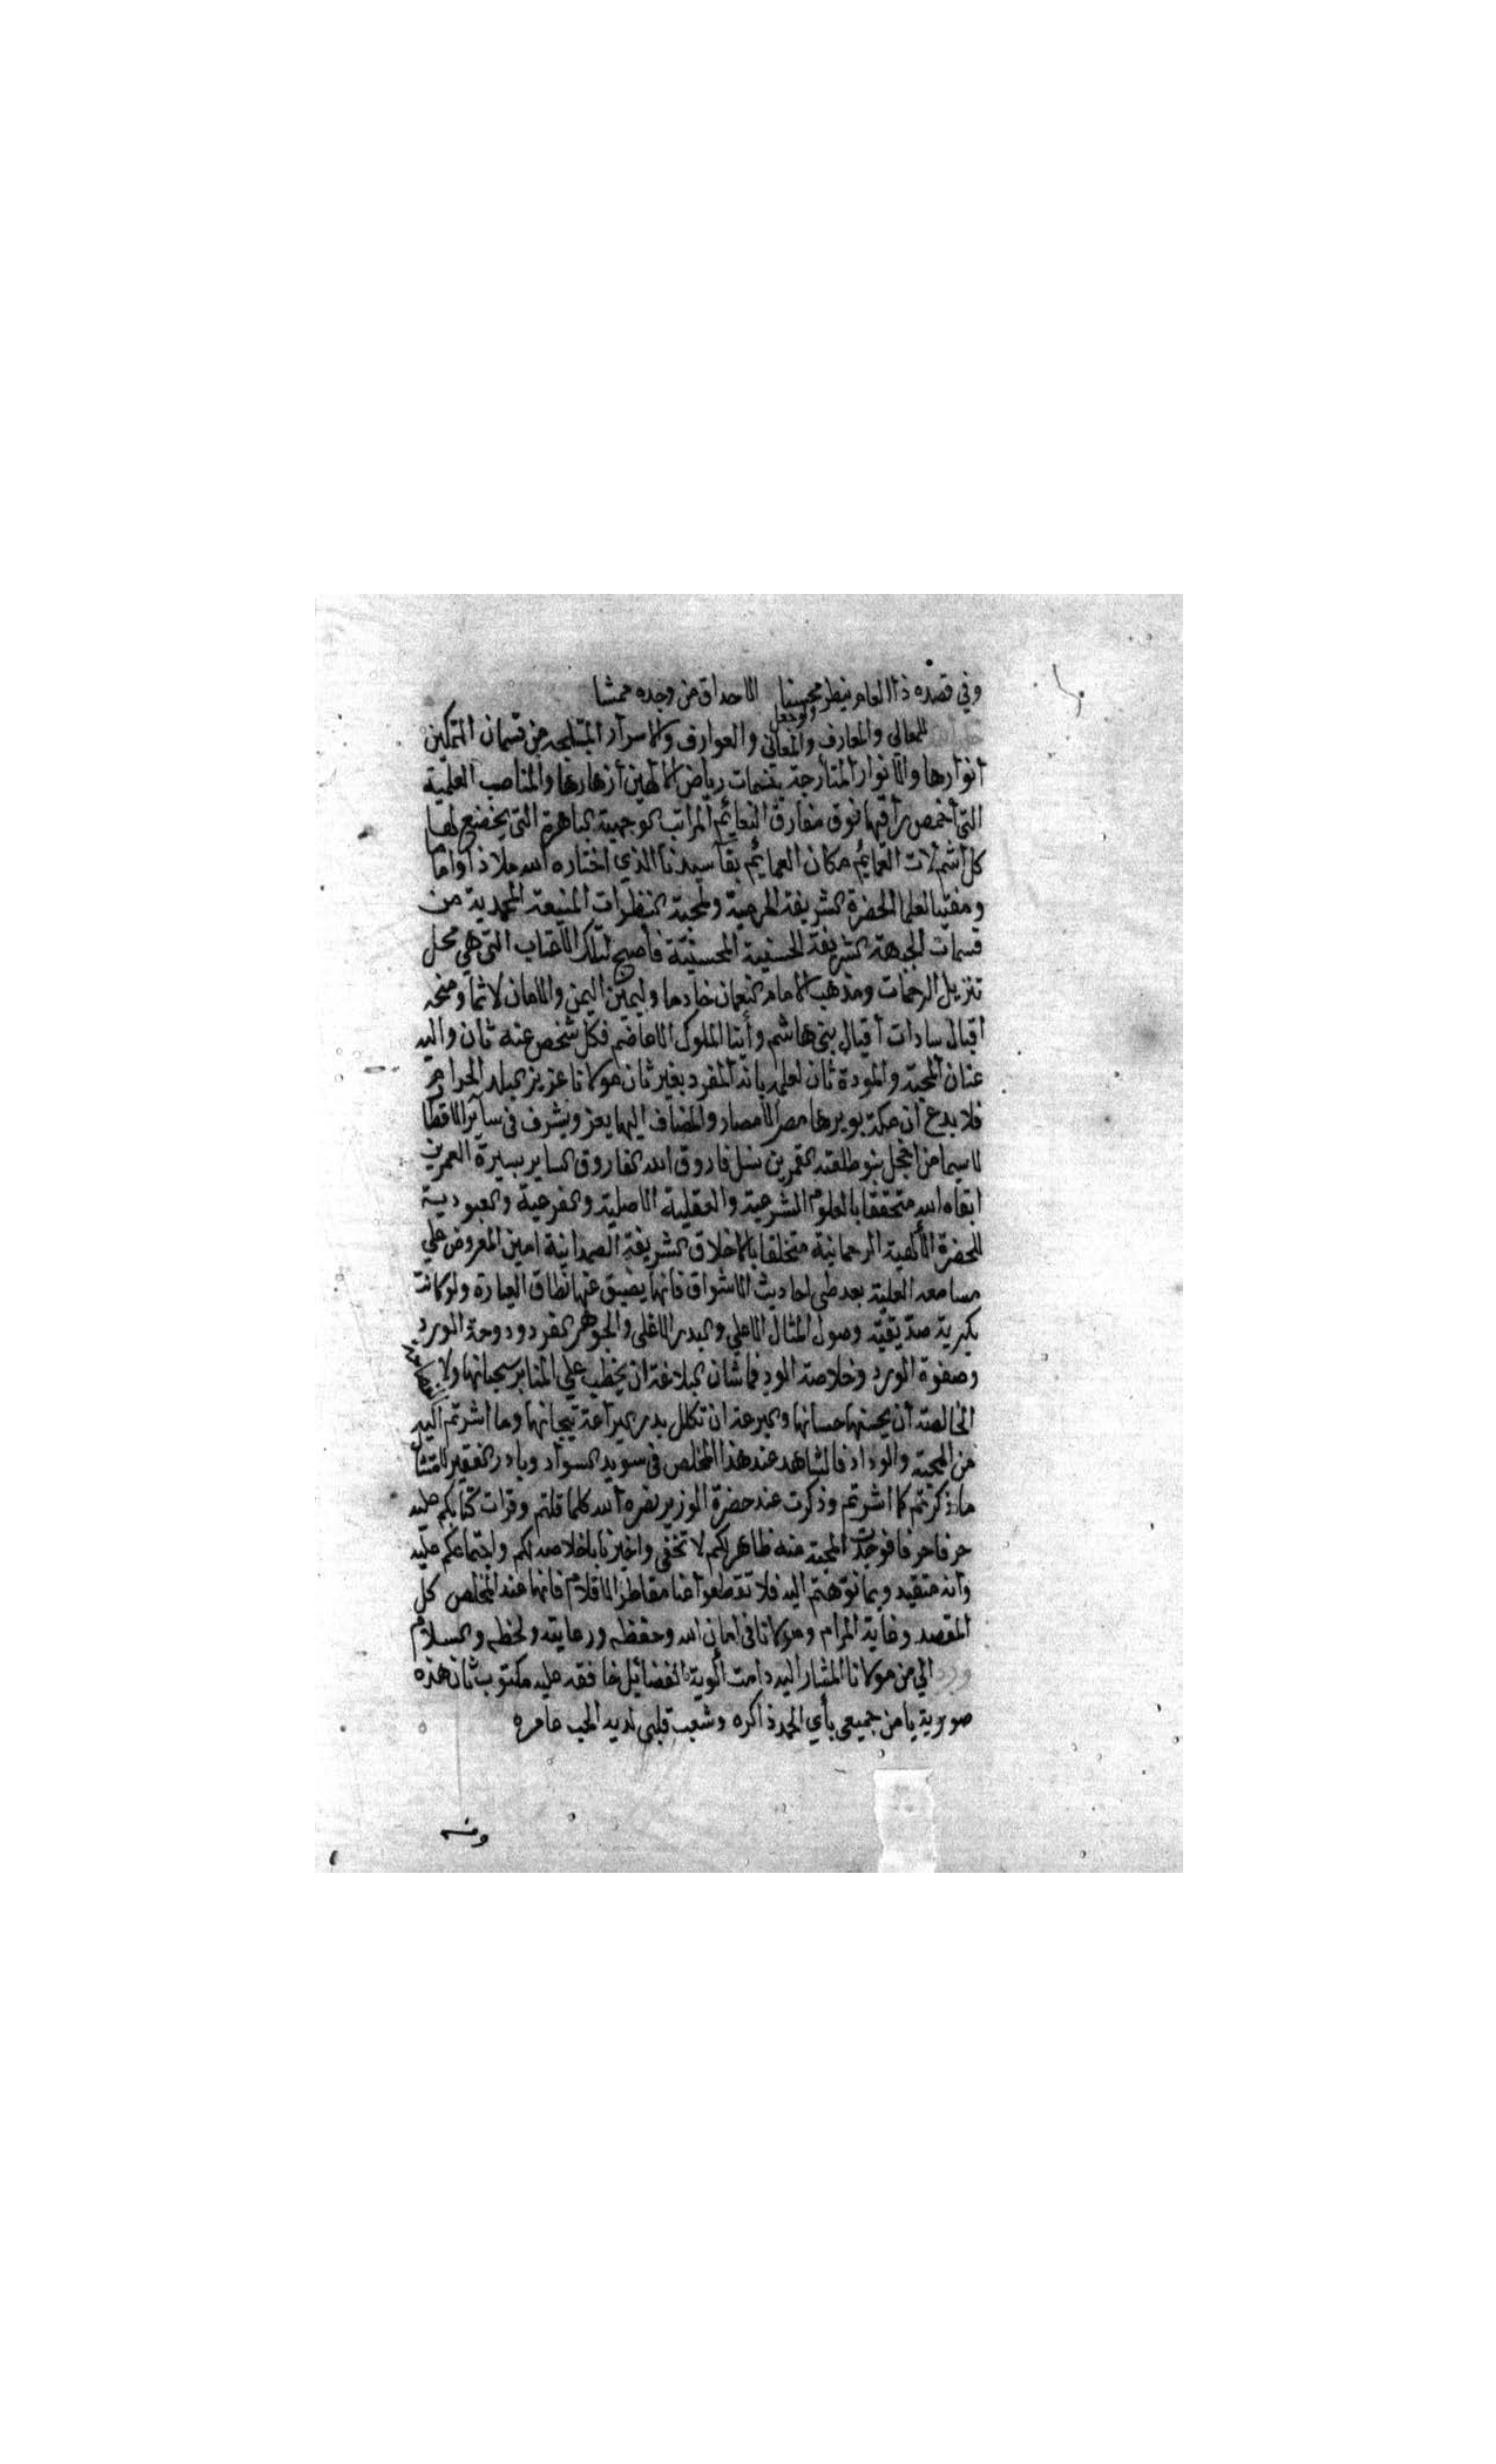 وفي قصده ذا العام ينظر محسنا الاحداق من وجده ممشا
للمعالي والمعارف والمعاني والعوارف والاسرار المتبلجه من قسمان التمكين
أنوارها والانوار المتأرجة بنسمات رياض أزهارها والمناصب العلية
التي أخمص راقيها فوق مفارق النعايم المراتب الوجيهة الباهرة التي يخضع لها
كل اشم لاث العمايم مكان العمايم بقآ سيدنا الذي اختاره الله ملاذا واماما
ومفتيا لعلما الحضرة الشريفة المرعية النظرات المنيعة المحمدية من
قسمات الجبهة الشريفة الحسنية المحسنية فأصبح لتلك الاعتاب التي هي محل
تنزيل الرحمات ومذهب الامام النعمان خادما وليمين اليمن والامان لاثما ومنحه
اقبال سادات أقيال بني هاشم وأبنا الملوك الاعاضم فكل شخص عنه ثان واليه
عنان المحبة والمودة ثان لعلمه بانه المفرد بغير ثان مولانا عزيز البلد الحرام
فلا بدع ان مكة بوبرها مصر الامصار والمضاف اليها يعز ويشرف في سآير الاقطا
لا سيما من اخجل بنو طلعته القمرين نسل فاروق الله الفاروق الساير بسيرة العمرين
ابقاه الله متحققا بالعلوم الشرعية والعقلية الاصلية والفرعية والعبودية
للحضرة الألهية الرحمانية متخلقا بالاخلاق الشريفة الصمدانية امين المعروض علي
مسامعه العلية بعد طي احاديث الاشواق فانها يضيق عنها نطاق العبارة ولو كانت
بكرية صديقية وصول المثال الاعلي والبدر الاغلي والجوهر الفرد ودوحة الورد
وصفوة الورد وخلاصة الود فما شان البلاغة ان يخطب علي المنابر سحبانها ولا
الخالصة أن يحسنها حسانها والبرعة ان تكلل بدر اليراعة تيجانها وما اشرتم اليه
من المحبة والوداد فالشاهد عند هذا المخلص في سويد السواد وبادر الفقير لامتثال
ما ذكرتم كما اشرتم وذكرت عند حضرة الوزير نصره الله كلما قلتم وقرات كتابكم عليه
حرفا حرفا فوجدت المحبة منه ظاهر لكم لا تخفى واخبرنا باخلاصه لكم واجتماعكم عليه
وأنه متقيد وبما نوهتم اليه فلا تقطعوا عنا مقاطر الاقلام فانها عند المخلص كل
المقصد وغاية المرام ومولانا في امان الله وحفظه ورعايته ولحظه والسلام
ورد الي من مولانا المشار اليه دامت ألوية الفضايل خافقه عليه مكتوب ثان هذه
صورته يا من جميعي بأي الحمد ذاكره وشعب قلبي لديه الحب عامره